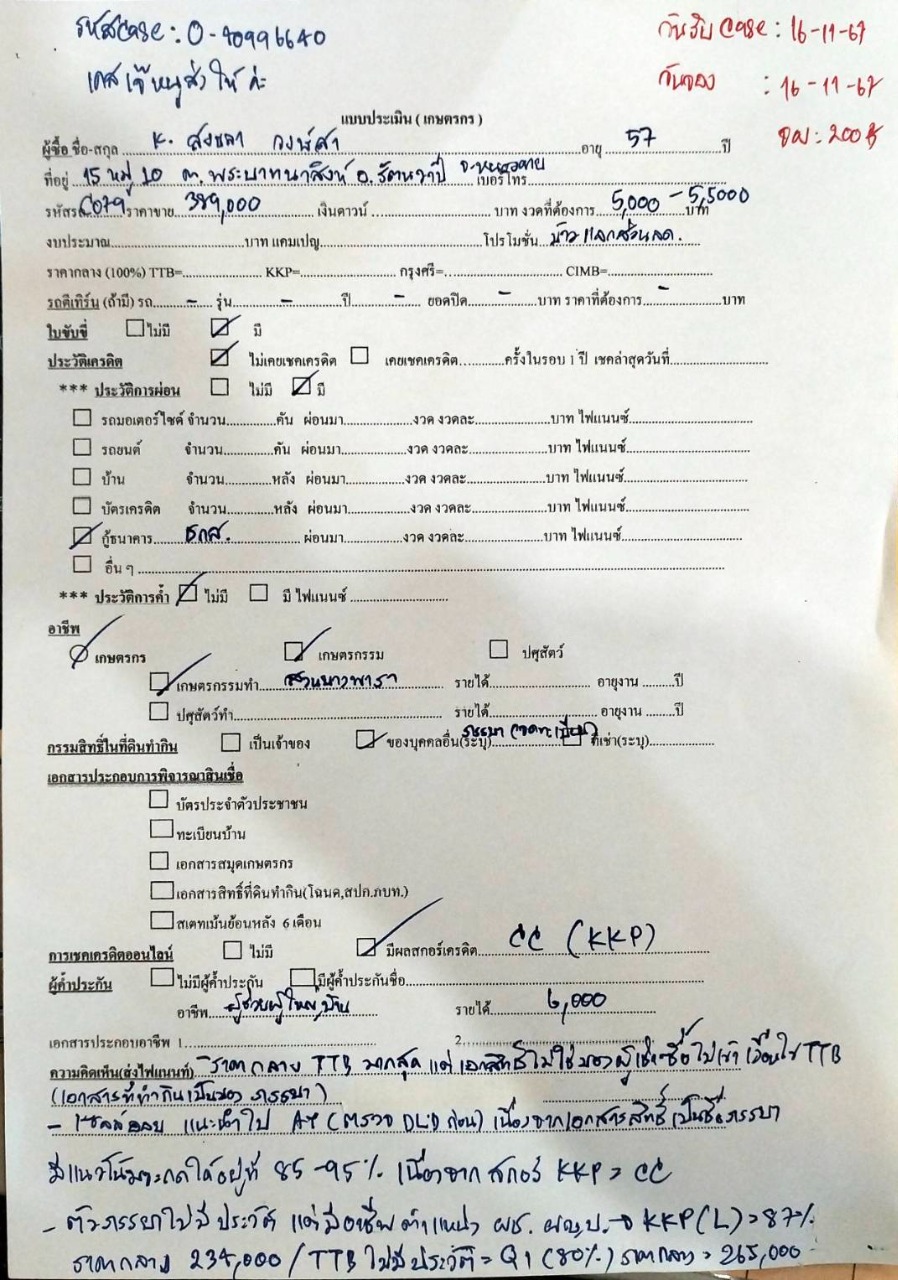 รหัสcase : 0-90996640
วันรับ case : 16-11-67
เคสเจ๊หนูส่งให้ค่ะ
วันจอง : 16-11-67
แบบประเมิน ( เกษตรกร )
ผู้ซื้อ ชื่อ-สกุล K. สงชลา วงษ์ศา อายุ 57 ปี
จอง : 200 ฿
ที่อยู่ 15 หมู่ 10 ต. พระบาทนาสิงห์ อ. รัตนวาปี จ.หนองคาย เบอร์โทร
รหัสรถ C079 ราคาขาย 389,000 เงินดาวน์ บาท งวดที่ต้องการ 5,000 - 5,5000 บาท
งบประมาณ บาท แคมเปญ โปรโมชั่น ข้าวแลกส่วนลด.
ราคากลาง (100%) TTB= KKP= กรุงศรี= CIMB=
รถตีเทิร์น (ถ้ามี) รถ - รุ่น - ปี - ยอดปิด - บาท ราคาที่ต้องการ - บาท
ใบขับขี่ ไม่มี มี
ประวัติเครดิต ไม่เคยเชคเครดิต เคยเชคเครดิต ครั้งในรอบ 1 ปี เชคล่าสุดวันที่
*** ประวัติการผ่อน ไม่มี มี
รถมอเตอร์ไซค์ จำนวน คัน ผ่อนมา งวด งวดละ บาท ไฟแนนซ์
รถยนต์ จำนวน คัน ผ่อนมา งวด งวดละ บาท ไฟแนนซ์
บ้าน จำนวน หลัง ผ่อนมา งวด งวดละ บาท ไฟแนนซ์
บัตรเครดิต จำนวน หลัง ผ่อนมา งวด งวดละ บาท ไฟแนนซ์
กู้ธนาคาร ธกส. ผ่อนมา งวด งวดละ บาท ไฟแนนซ์
อื่น ๆ
*** ประวัติการค้ำ ไม่มี มี ไฟแนนซ์
อาชีพ
เกษตรกร เกษตรกรรม ปศุสัตว์
เกษตรกรรมทำ สวนยางพารา รายได้ อายุงาน ปี
ปศุสัตว์ทำ รายได้ อายุงาน ปี
กรรมสิทธิ์ในที่ดินทำกิน เป็นเจ้าของ ของบุคคลอื่น(ระบุ) ภรรยา (จดทะเบียน) ที่เช่า(ระบุ)
เอกสารประกอบการพิจารณาสินเชื่อ
บัตรประจำตัวประชาชน
ทะเบียนบ้าน
เอกสารสมุดเกษตรกร
เอกสารสิทธิ์ที่ดินทำกิน(โฉนด,สปก.ภบท.)
สเตทเม้นย้อนหลัง 6 เดือน
การเชคเครดิตออนไลน์ ไม่มี มีผลสกอร์เครดิต CC (KKP)
ผู้ค้ำประกัน ไม่มีผู้ค้ำประกัน มีผู้ค้ำประกันชื่อ
อาชีพ ผู้ช่วยผู้ใหญ่บ้าน รายได้ 6,000
เอกสารประกอบอาชีพ 1. 2.
ความคิดเห็น(ส่งไฟแนนท์) - ราคากลาง TTB มากสุด แต่ เอกสิทธิ์ไม่ใช่ของผู้เช่าซื้อ ไม่เข้า เงื่อนไข TTB
(เอกสารที่ทำกินเป็นของ ภรรยา)
- แนะนำไป AY (ตรวจ DLD ก่อน) เนื่องจากเอกสารสิทธิ์เป็นชื่อภรรยา
มีแนวโน้มจะกดให้อยู่ที่ 85-95% เนื่องจาก สกอร์ KKP = CC
- ตัวภรรยาไม่มีประวัติ แต่มีอาชีพ ตำแหน่ง ผช. ผญ.บ. → KKP (L) = 87%
ราคากลาง 234,000 / TTB ไม่มีประวัติ = Q1 (80%) ราคากลาง = 265,000